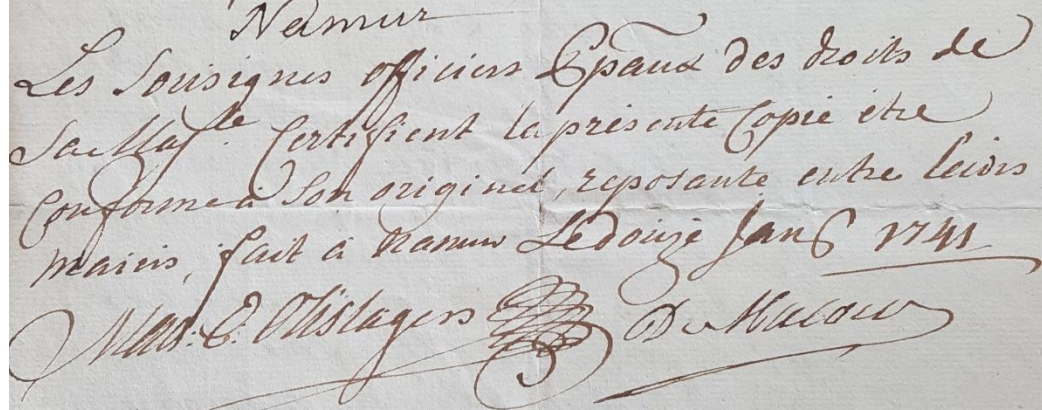 Namur
Les Sousignes officiers Epaux des droits de
Sa Maj.te Certifient la présente Copie étre
Conforme à Son originel, reposante entre leurs
mains, fait à Namur Le douze Janv 1741
De